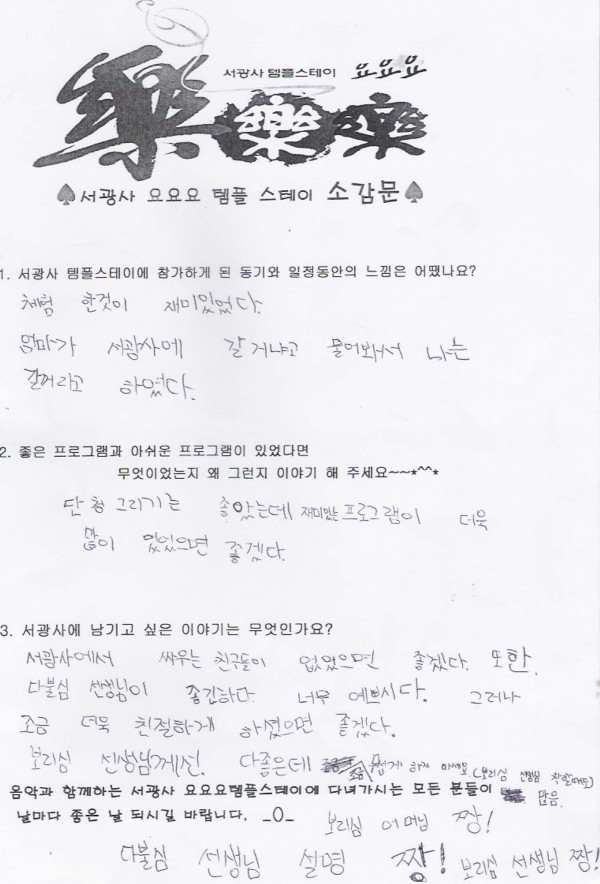 서광사 템플스테이 요요요
樂 樂 樂
♠서광사 요요요 템플 스테이 소감문♠
1. 서광사 템플스테이에 참가하게 된 동기와 일정동안의 느낌은 어땠나요?
체험 한것이 재미있었다.
엄마가 서광사에 갈 거냐고 물어봐서 나는
갈꺼라고 하였다.
2. 좋은 프로그램과 아쉬운 프로그램이 있었다면
무엇이었는지 왜 그런지 이야기 해 주세요~~*^^*
단청 그리기는 좋았는데 재미있는 프로그램이 더욱
많이 있었으면 좋겠다.
3. 서광사에 남기고 싶은 이야기는 무엇인가요?
서광사에서 싸우는 친구들이 없었으면 좋겠다. 또한,
다불심 선생님이 좋긴하다. 너무 예쁘시다. 그러나
조금 더욱 친절하게 하셨으면 좋겠다.
보리심 선생님께선 다좋은데 조금 하지 마세요. (보리심 선생님 착할때도)
음악과 함께하는 서광사 요요요템플스테이에 다녀가시는 모든 분들이 많음.
날마다 좋은 날 되시길 바랍니다. _O_ 보리심 어머님 짱!
다불심 선생님 설명 짱! 보리심 선생님 짱!